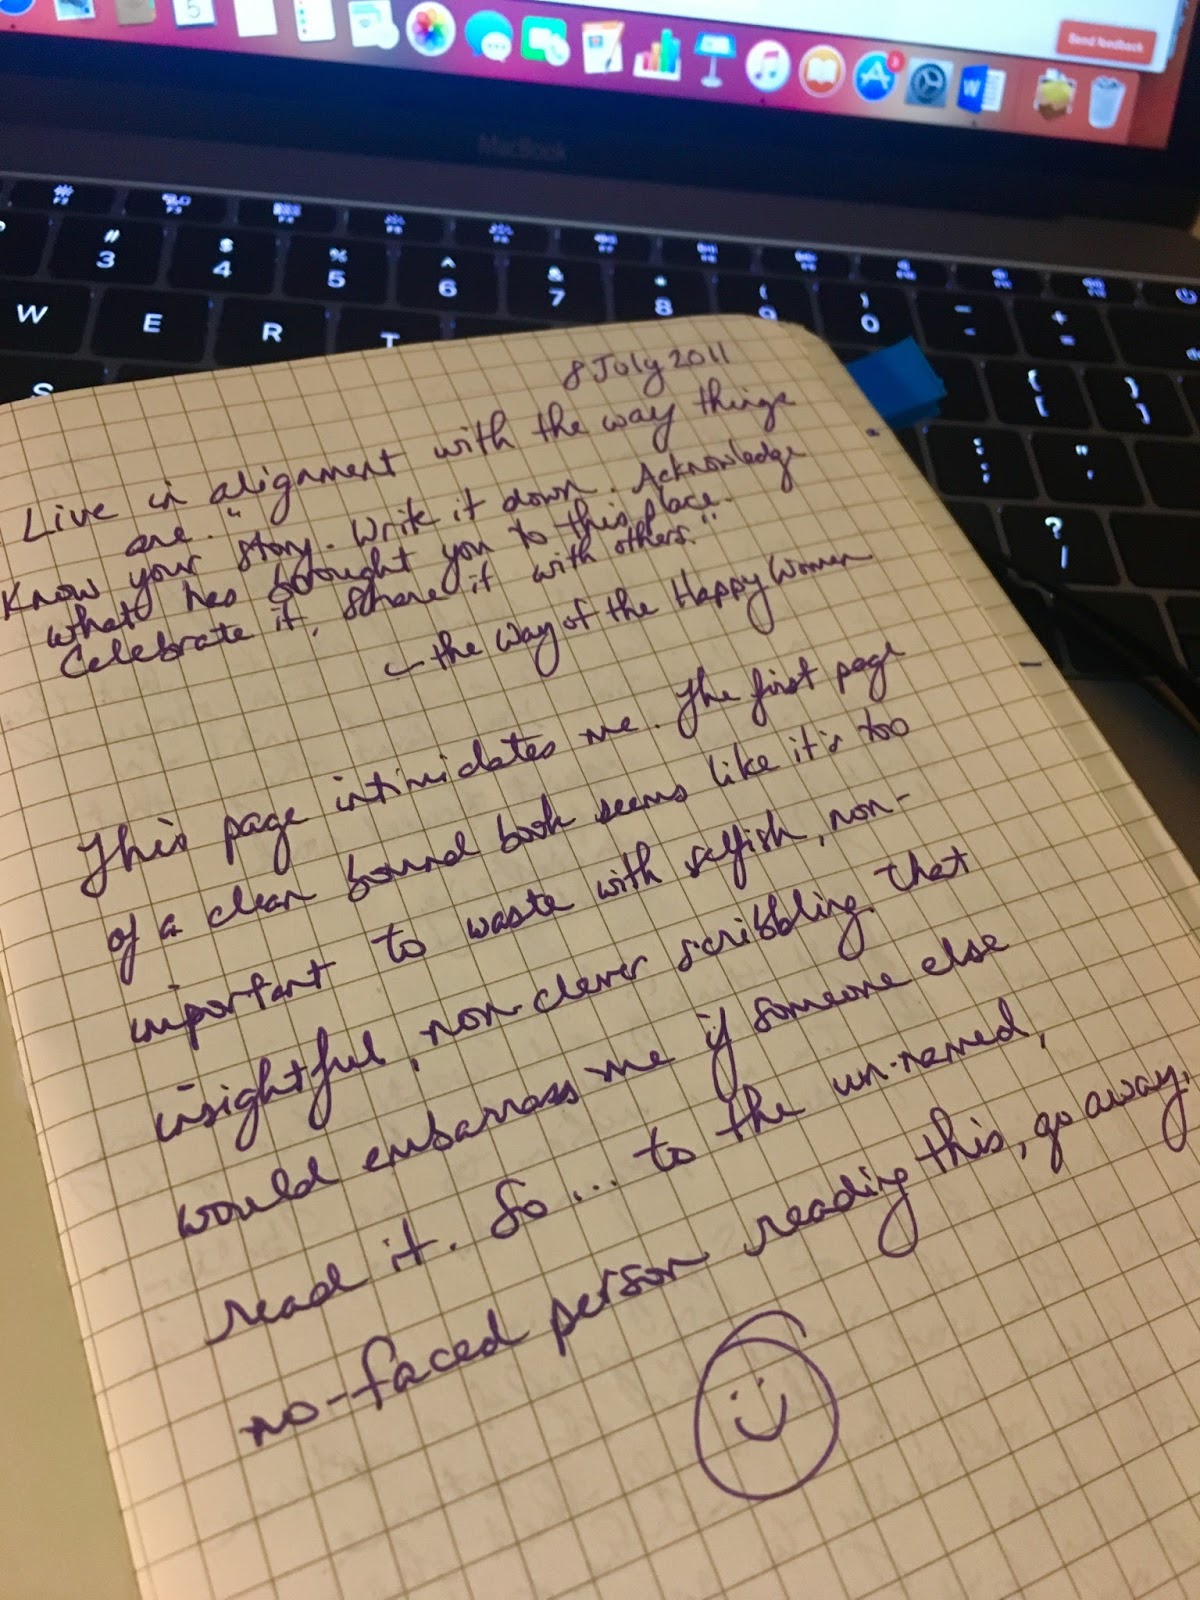 Send feedback
5
3
W
MacBook
F2
F3
# $ % ^ & * ( ) _ +
3 4 5 6 7 8 9 0 - =
W E R T
S
{ }
[ ]
: "
; '
?
/
8 July 2011
Live in alignment with the way things
are."
Know your story. Write it down. Acknowledge
what has brought you to this place.
Celebrate it. Share it with others."
- the Way of the Happy Women
This page intimidates me. The first page
of a clean bound book seems like it's too
important to waste with selfish, non-
insightful, non-clever scribbling that
would embarrass me if someone else
read it. So... to the un-named,
no-faced person reading this, go away.